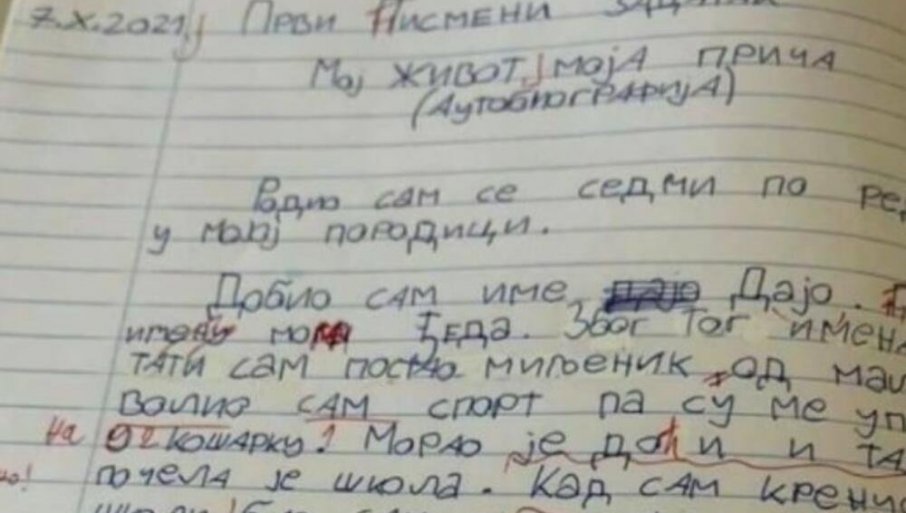 7.X.2021. Први Писмени
Мој живот, моја прича
(Аутобиографија)
Родио сам се седми по ре
у мојој породици.
Добио сам име Дајо.
имену мога ђеда. Због тог имен
тати сам постао миљеник, од мал
волио сам спорт па су ме уп
на кошарку! Морао је доћи и та
почела је школа. Кад сам крену